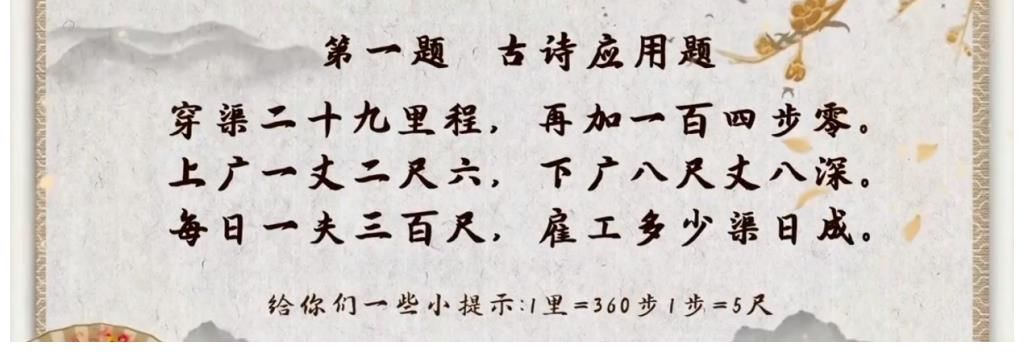 第一题 古诗应用题
穿渠二十九里程，再加一百四步零。
上广一丈二尺六，下广八尺丈八深。
每日一夫三百尺，雇工多少渠日成。
给你们一些小提示:1里=360步1步=5尺